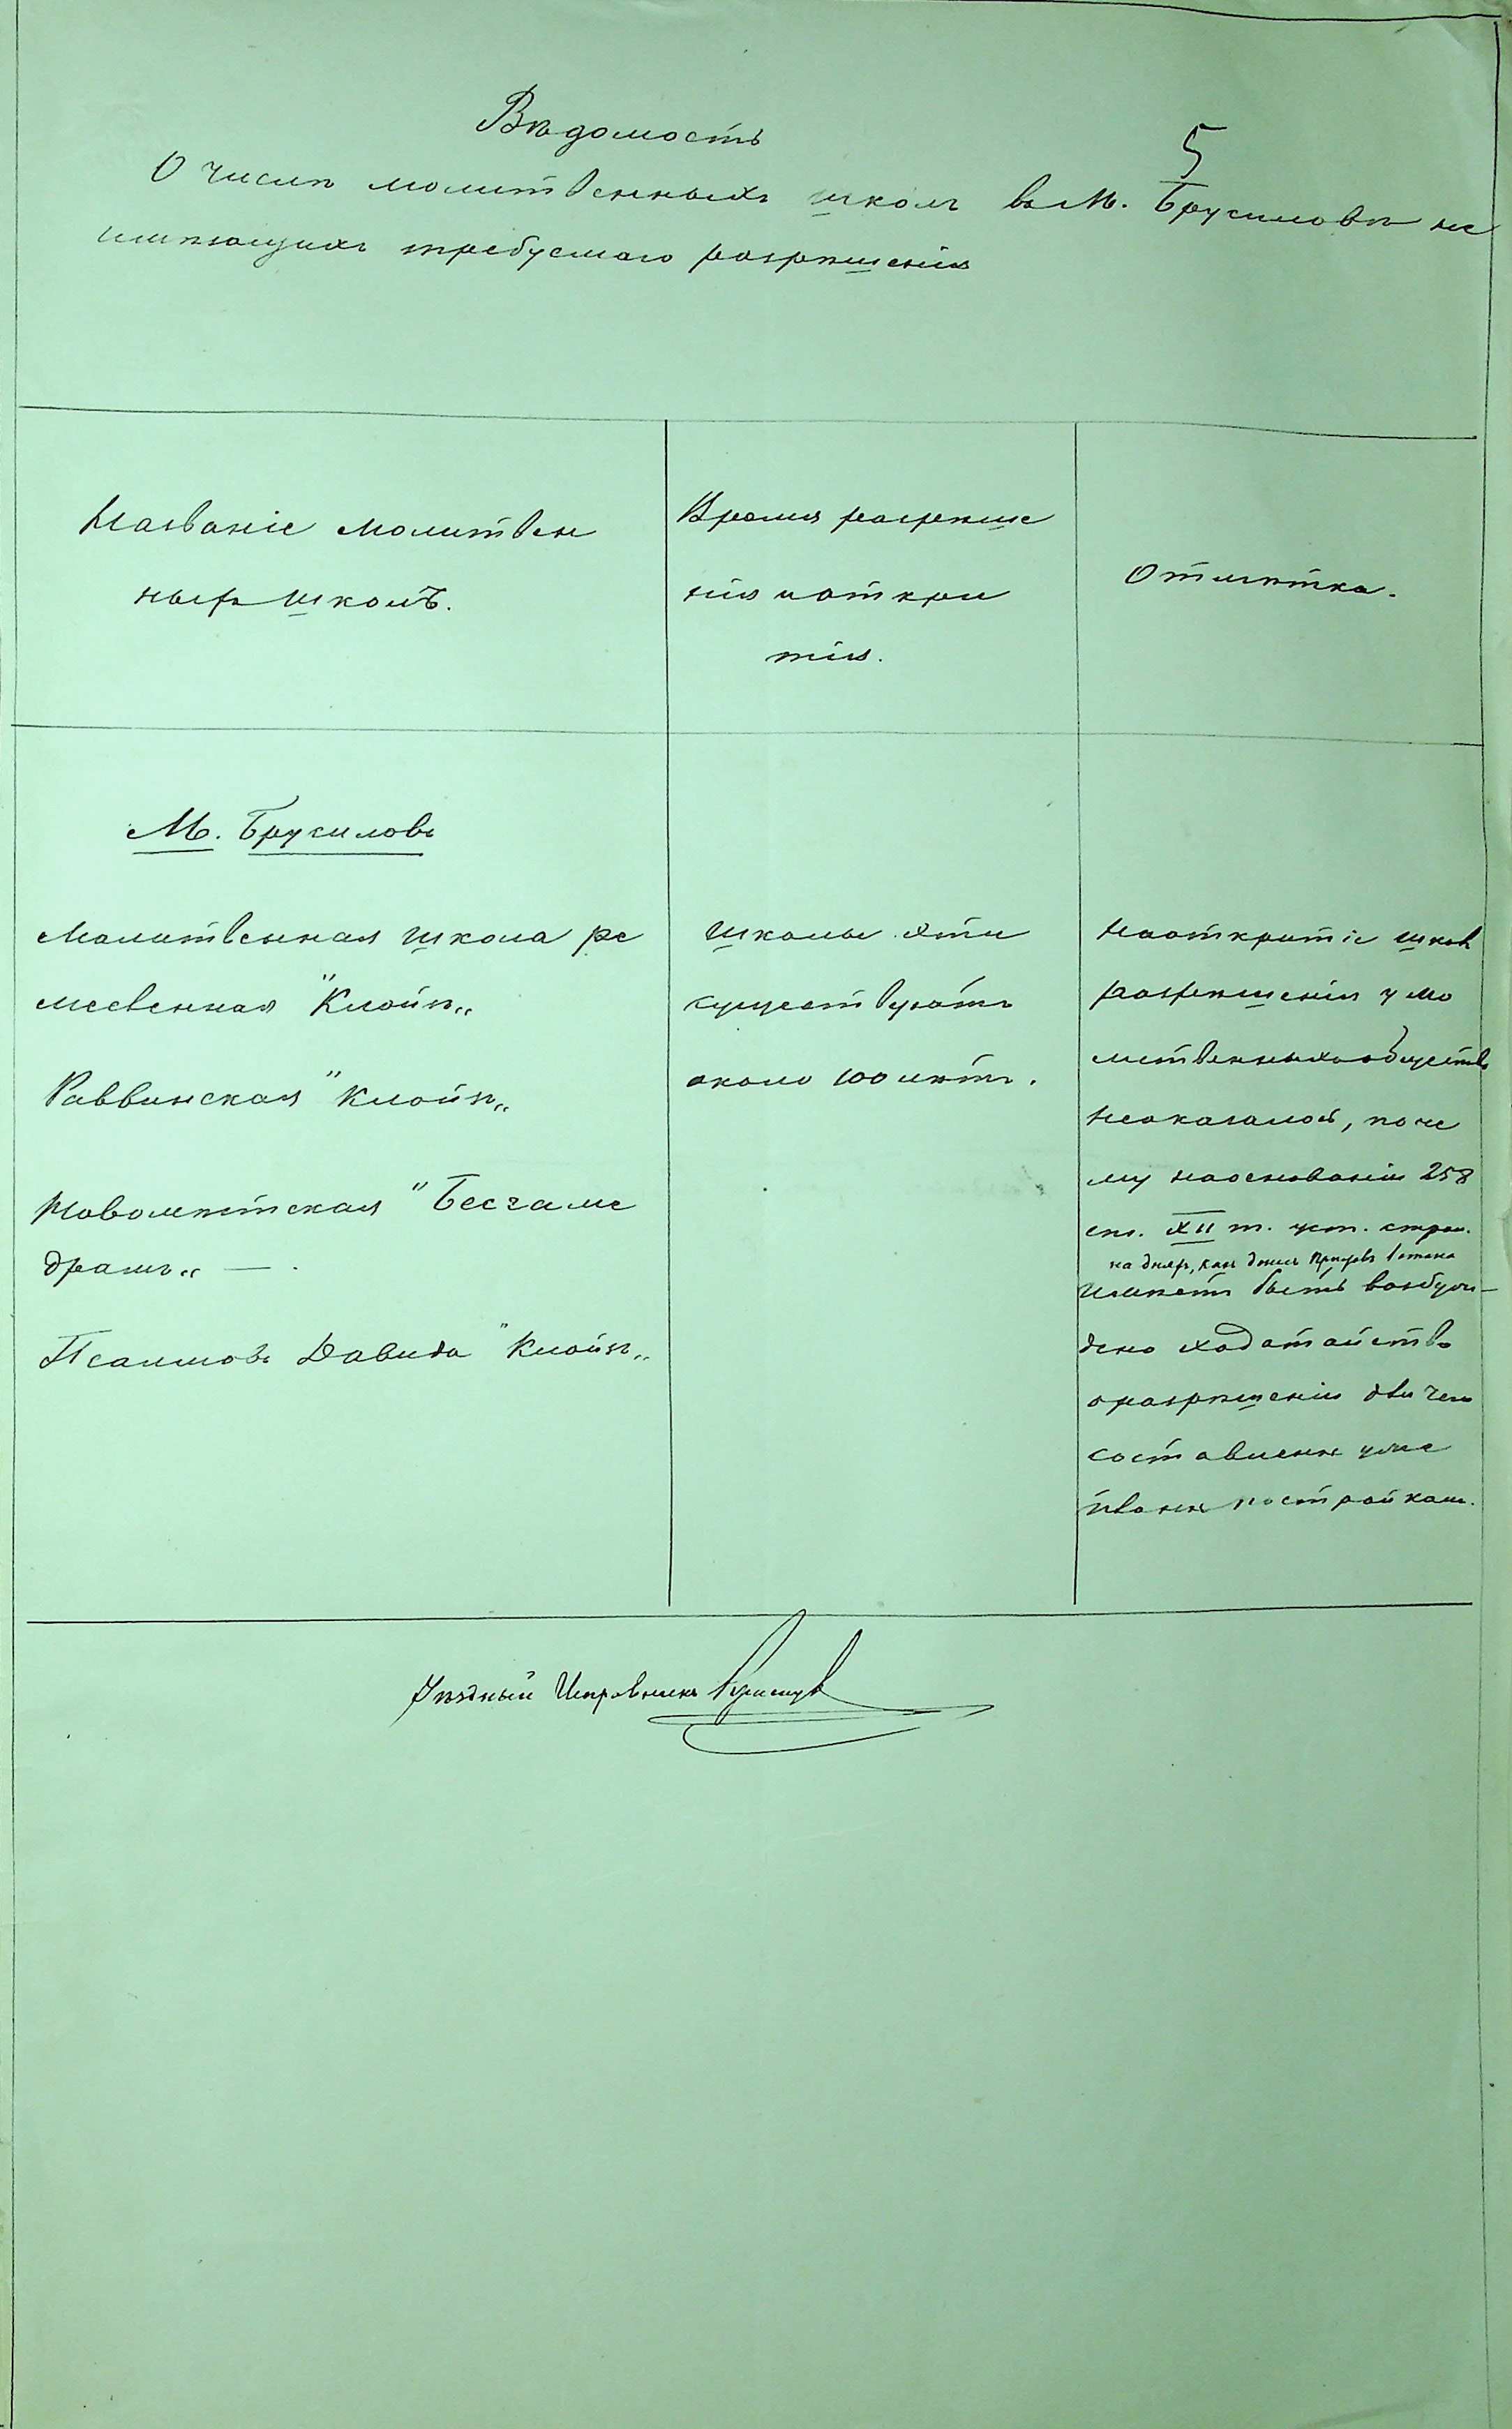 Вѣдомость
5
О числѣ молитвенныхъ школъ въ М. Брусиловѣ не
имѣющихъ требуемаго разрѣшенія
Названіе молитвен
ныхъ школъ.
Время разрѣше
нія и откры
тія.
Отмѣтка.
М. Брусиловъ
Молитвенная школа ре
месленная "Клойзъ„
Раввинская "Клойзъ„
Новомѣстская "Бесгаме
драшъ„ — .
Псалмовъ Давида "Клойзъ„
Школы эти
существуютъ
около 100 лѣтъ.
На открытіе школъ
разрѣшенія у мо
литвенныхъ обществъ
неоказалось, поче
му на основаніи 258
ст. XII т. уст. строи.
на дняхъ, какъ
имѣетъ быть возбуж-
дено ходатайство
о разрѣшеніи
составлены уже
планы постройкам.
Уѣздный Исправникъ